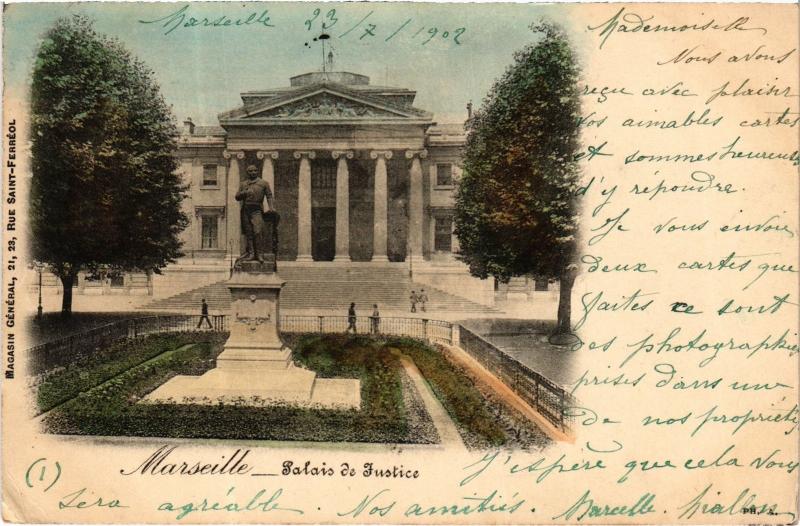 Marseille 23/7/1902
Mademoiselle
Nous avons
reçu avec plaisir
vos aimables cartes
et sommes heureuses
d'y répondre.
Je vous envoie
deux cartes que
faites ce sont
des photographies
prises dans une
de nos propriétés
J'espère que cela vous
sera agréable. Nos amitiés. Marcelle
(1)
Marseille — Palais de Justice
MAGASIN GÉNÉRAL, 21, 23, RUE SAINT-FERRÉOL
PH. A.